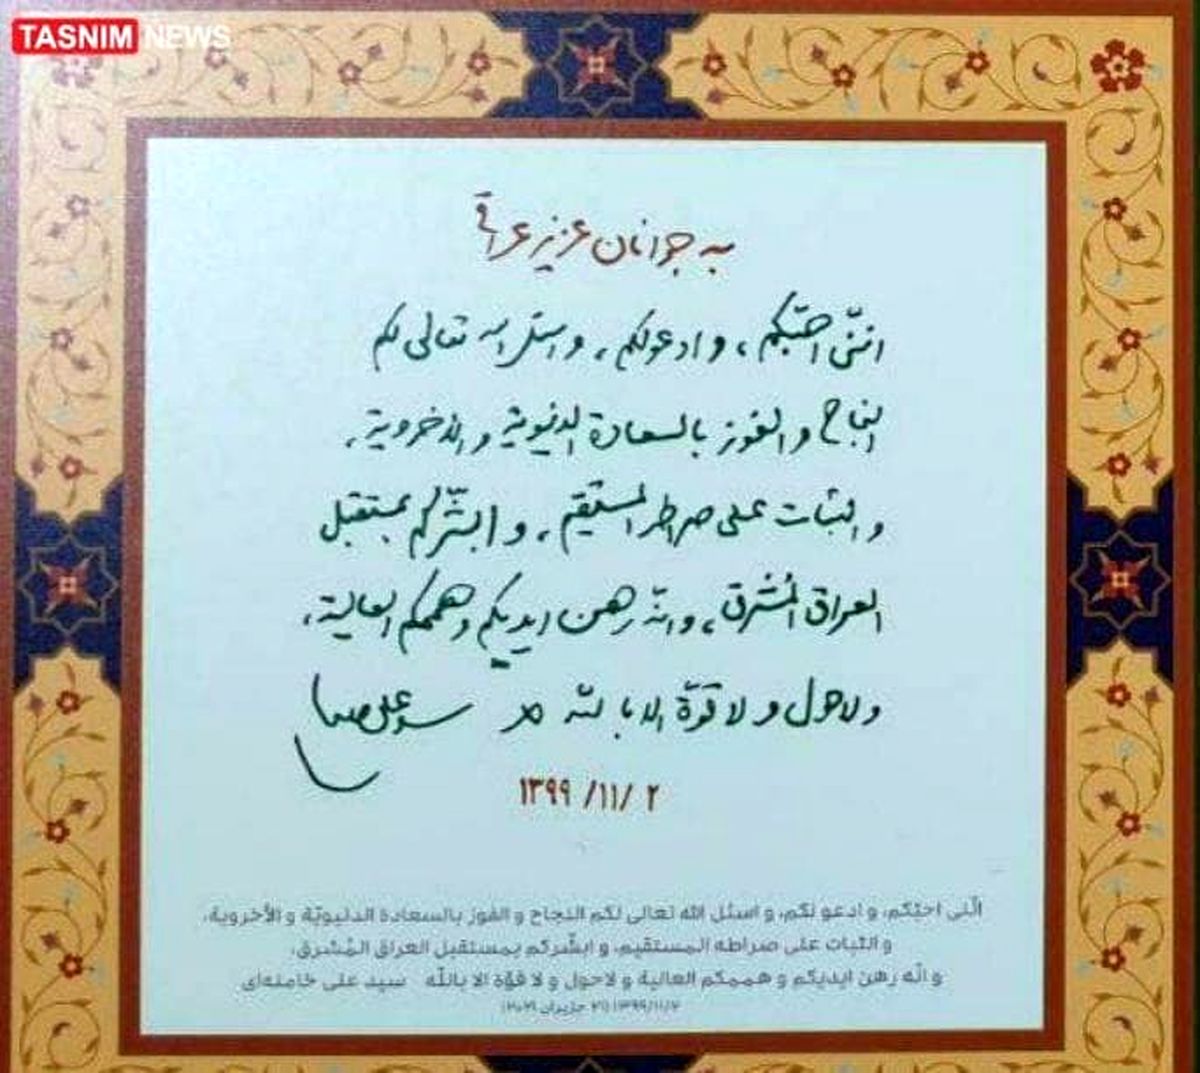 TASNIM NEWS
به جوانان عزیز عراقی
اننّی احبّکم، و ادعولکم، و اسئل الله تعالی لکم
النجاح و الفوز بالسعادة الدنیویة و الاخرویة،
و الثبات علی صراطه المستقیم، و ابشّرکم بمستقبل
العراق المُشرق، و انّه رهن ایدیکم و هممکم العالیة،
ولاحول و لا قوّة الا بالله سیدعلی خامنه‌ای
۲ /۱۱/ ۱۳۹۹
انّنی احبّکم، و ادعو لکم، و اسئل الله تعالی لکم النجاح و الفوز بالسعادة الدنیویّة و الأخرویة،
و الثبات علی صراطه المستقیم، و ابشّرکم بمستقبل العراق المُشرق،
و انّه رهن ایدیکم و هممکم العالیة و لاحول و لا قوّة الا بالله سید علی خامنه‌ای